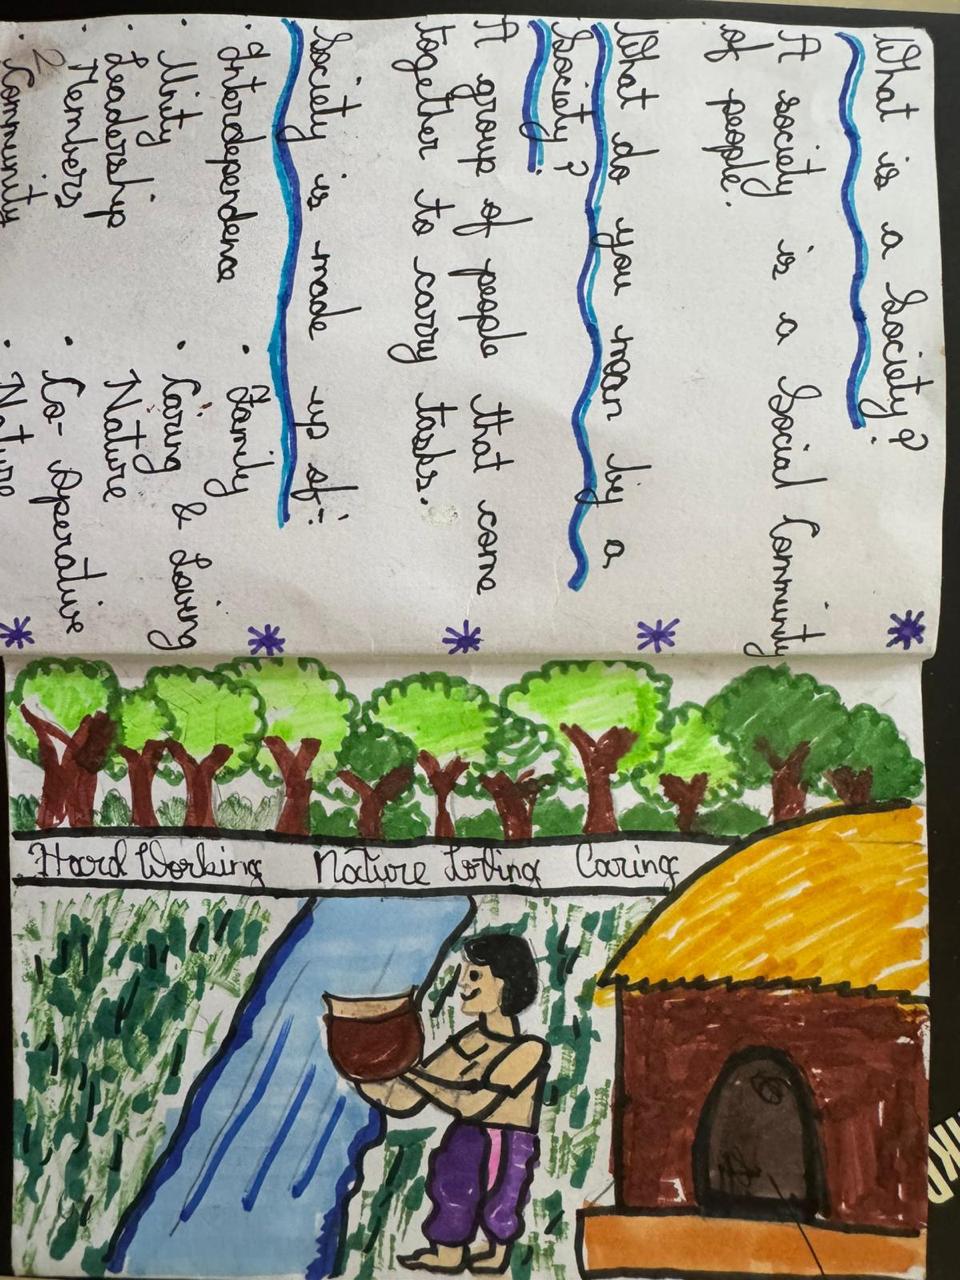 What is a Society?
A society is a Social Community
of people.
What do you mean by a
Society?
A group of people that come
together to carry tasks.
Society is made up of:-
• Interdependence
• Family
• Unity
• Caring & Loving
Nature
• Leadership
• Members
• Co-Operative
Nature
• Community
Hard Working Nature Loving Caring